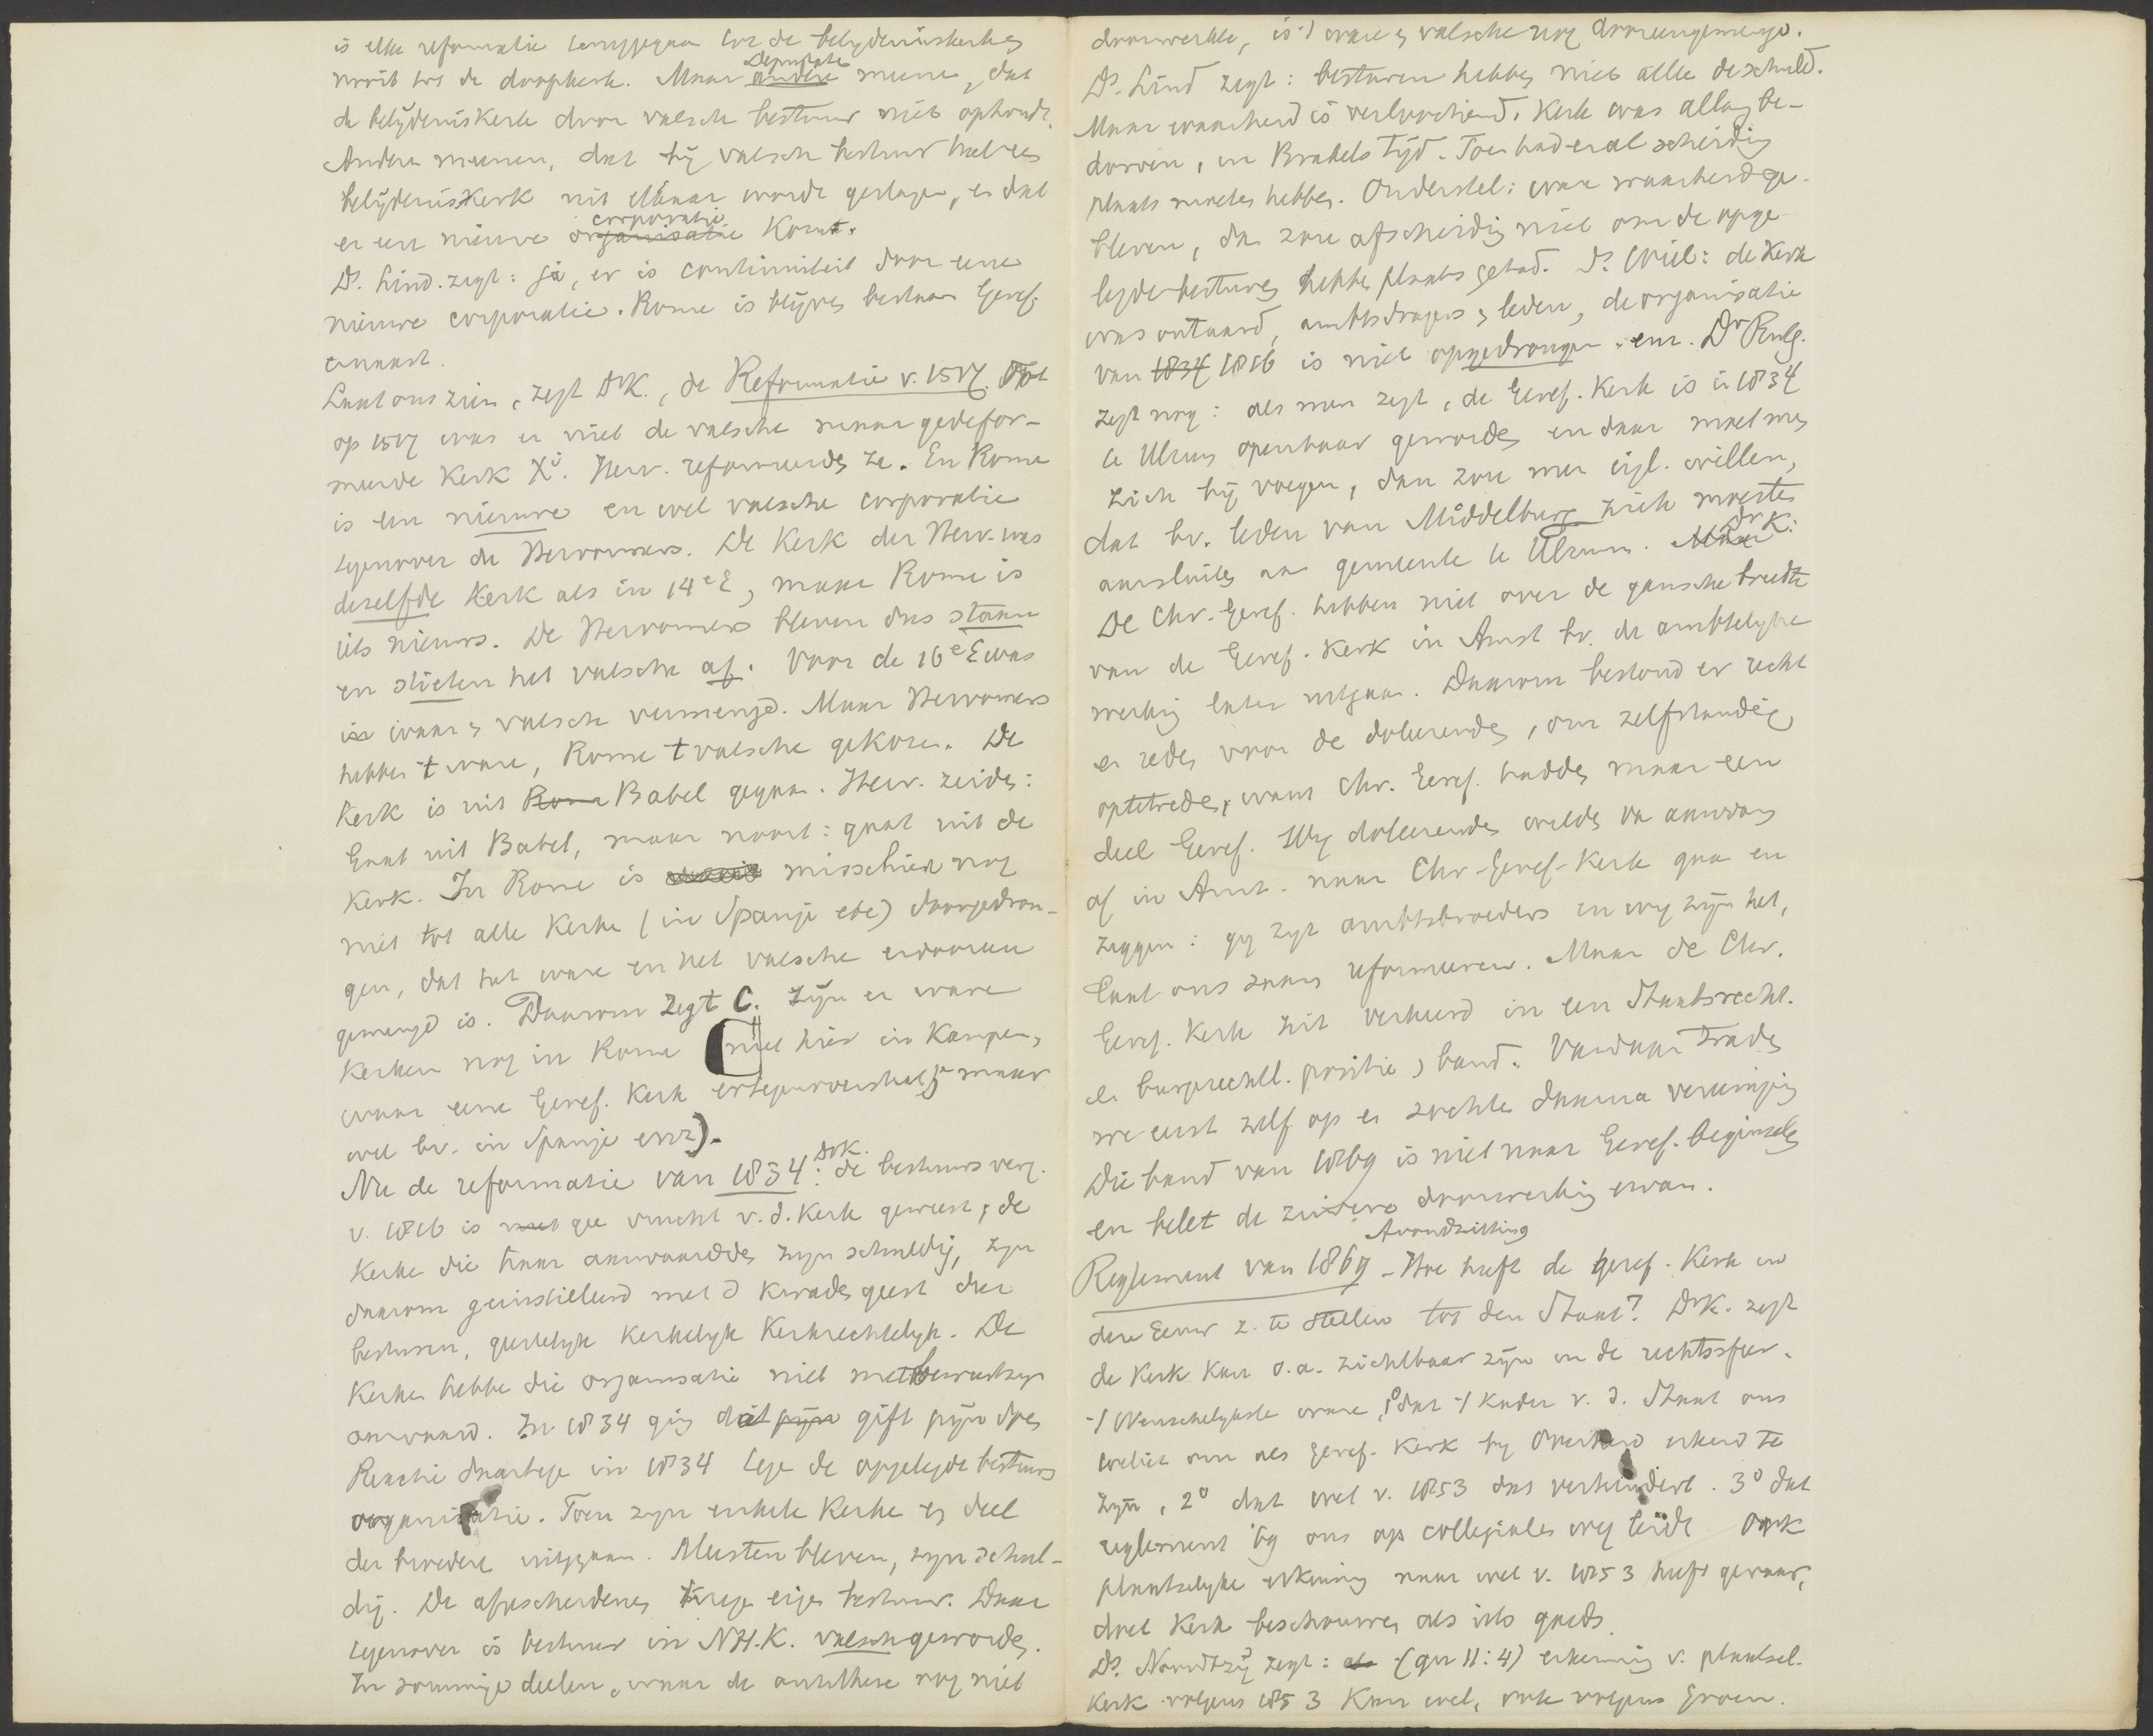 is elke reformatie teruggegaan tot de belydeniskerk en
nooit tot de doopkerk. Maar andere Deputate meene, dat
de belydeniskerk door valsch bestuur niet ophoudt.
Andere meenen, dat bij valsch bestuur heel een
belijdeniskerk uit elkaar worde geslagen, en dat
er een nieuwe organisatie corporatie komt.
Ds. Lind. zegt: ja, er is continuiteit door eene
nieuwe corporatie. Rome is blijven bestaan Geref.
ernaast.
Laat ons zien, zegt Dr K., de Reformatie v. 1517. Tot
op 1517 was er niet de valsche maar gedefor-
meerde Kerk Xi. Herv. reformeerden ze. En Rome
is een nieuwe en wel valsche corporatie
tegenover de Hervormers. De Kerk der Herv. was
dezelfde Kerk als in 14e E, maar Rome is
iets nieuws. De Hervormers bleven dus staan
en stieten het valsche af. Voor de 16e E was
is waar en valsch vermengd. Maar Hervormers
hebben t ware, Rome t valsche gekozen. De
Kerk is uit Rome Babel gegaan. Herv. zeiden:
Gaat uit Babel, maar nooit: gaat uit de
Kerk. In Rome is misschien nog
niet tot alle Kerke (in Spanje etc) doorgedron-
gen, dat het ware en het valsche erdooreen
gemengd is. Daarom zegt C. zijn er ware
Kerken nog in Rome (niet hier in Kampen,
waar eene Geref. Kerk ertegenoverstaat, maar
wel bv. in Spanje enz).
Nu de reformatie van 1834: Dr K. de bestuursverg.
v. 1816 is met gee vrucht v. d. Kerk geweest; de
Kerke die haar aanvaardden zijn schuldig, zyn
daarom geinstilleerd met d kwaden geest dier
besturen, geestelyk kerkelyk Kerkrechtelyk. De
Kerken hebbe die organisatie niet met bewustzyn
aanvaard. In 1834 ging dat gift
Reactie daartege in 1834 tege de opgelegde bestuurs
organisatie. Toen zyn enkele Kerke en deel
der broedere uitgegaan. Meesten bleven, zyn schul-
dig. De afgescheidenen krege eigen bestuur. Daar
tegenover is bestuur in N.H.K. valsch geworden.
In sommige deelen, waar de antithese nog niet
doorwerkte, is -/ ware en valsche nog dooreengemengd.
Ds. Lind zegt: besturen hebben niet alle de schuld.
Maar waarheid is verloochend. Kerk was allang be-
dorven, in Brakels tijd. Toen had er al scheiding
plaats moeten hebben. Onderstel: ware waarheid ge-
bleven, dan zou afscheiding niet om de opge
legde besturen hebbe plaats gehad. Ds. Wiel: de Kerk
was ontaard, ambtsdragers en leden, de organisatie
van 1834 1816 is niet opgedrongen enz. Dr Rutg.
zegt nog: als men zegt, de Geref. Kerk is in 1834
te Ulrum openbaar geworden en daar moet men
zich bij voegen, dan zou men eigl. willen,
dat bv. leden van Middelburg zich moesten
aansluiten aan gemeente te Ulrum. Maar Dr K:
De Chr. Geref. hebben niet over de gansche breedte
van de Geref. Kerk in Amst bv. de ambtelyke
werking laten uitgaan. Daarom bestond er recht
en reden voor de doleerenden, om zelfstandig
optetreden, want Chr. Geref. hadden maar een
deel Geref. Wy doleerenden wilden van aanvang
af in Amst. naar Chr-Geref-Kerk gaan en
zeggen: gy zyt ambtsbroeders en wy zijn het,
laat ons saam reformeeren. Maar de Chr.
Geref. Kerk zit verkeerd in een Staatsrecht.
en burgrechtl. positie, band. Vandaar trade
we eerst zelf op en zochte daarna vereeniging
Die band van 1869 is niet naar Geref. beginselen
en belet de zuivere doorwerking ervan.
Avondzitting
Reglement van 1869 - Hoe heeft de geref. Kerk in
deze Eeuw z. te stellen tot den Staat? Dr K. zegt
de Kerk kan o.a. zichtbaar zijn in de rechtssfeer.
-/ Wenschelykste ware, 1o dat -/ kader v. d. Staat ons
toeliet om als geref. Kerk by Overheid erkend te
zijn, 2o dat wet v. 1853 dat verhindert. 3o dat
reglement by ons op collegiales weg leidde ook
plaatselyke erkenning naar wet v. 1853 heeft gevaar,
doet Kerk beschouwen als iets goeds.
Ds. Noordtzij zegt: (gen 11:4) erkenning v. plaatsel.
Kerk volgens 1853 kan wel, ook volgens Groen.